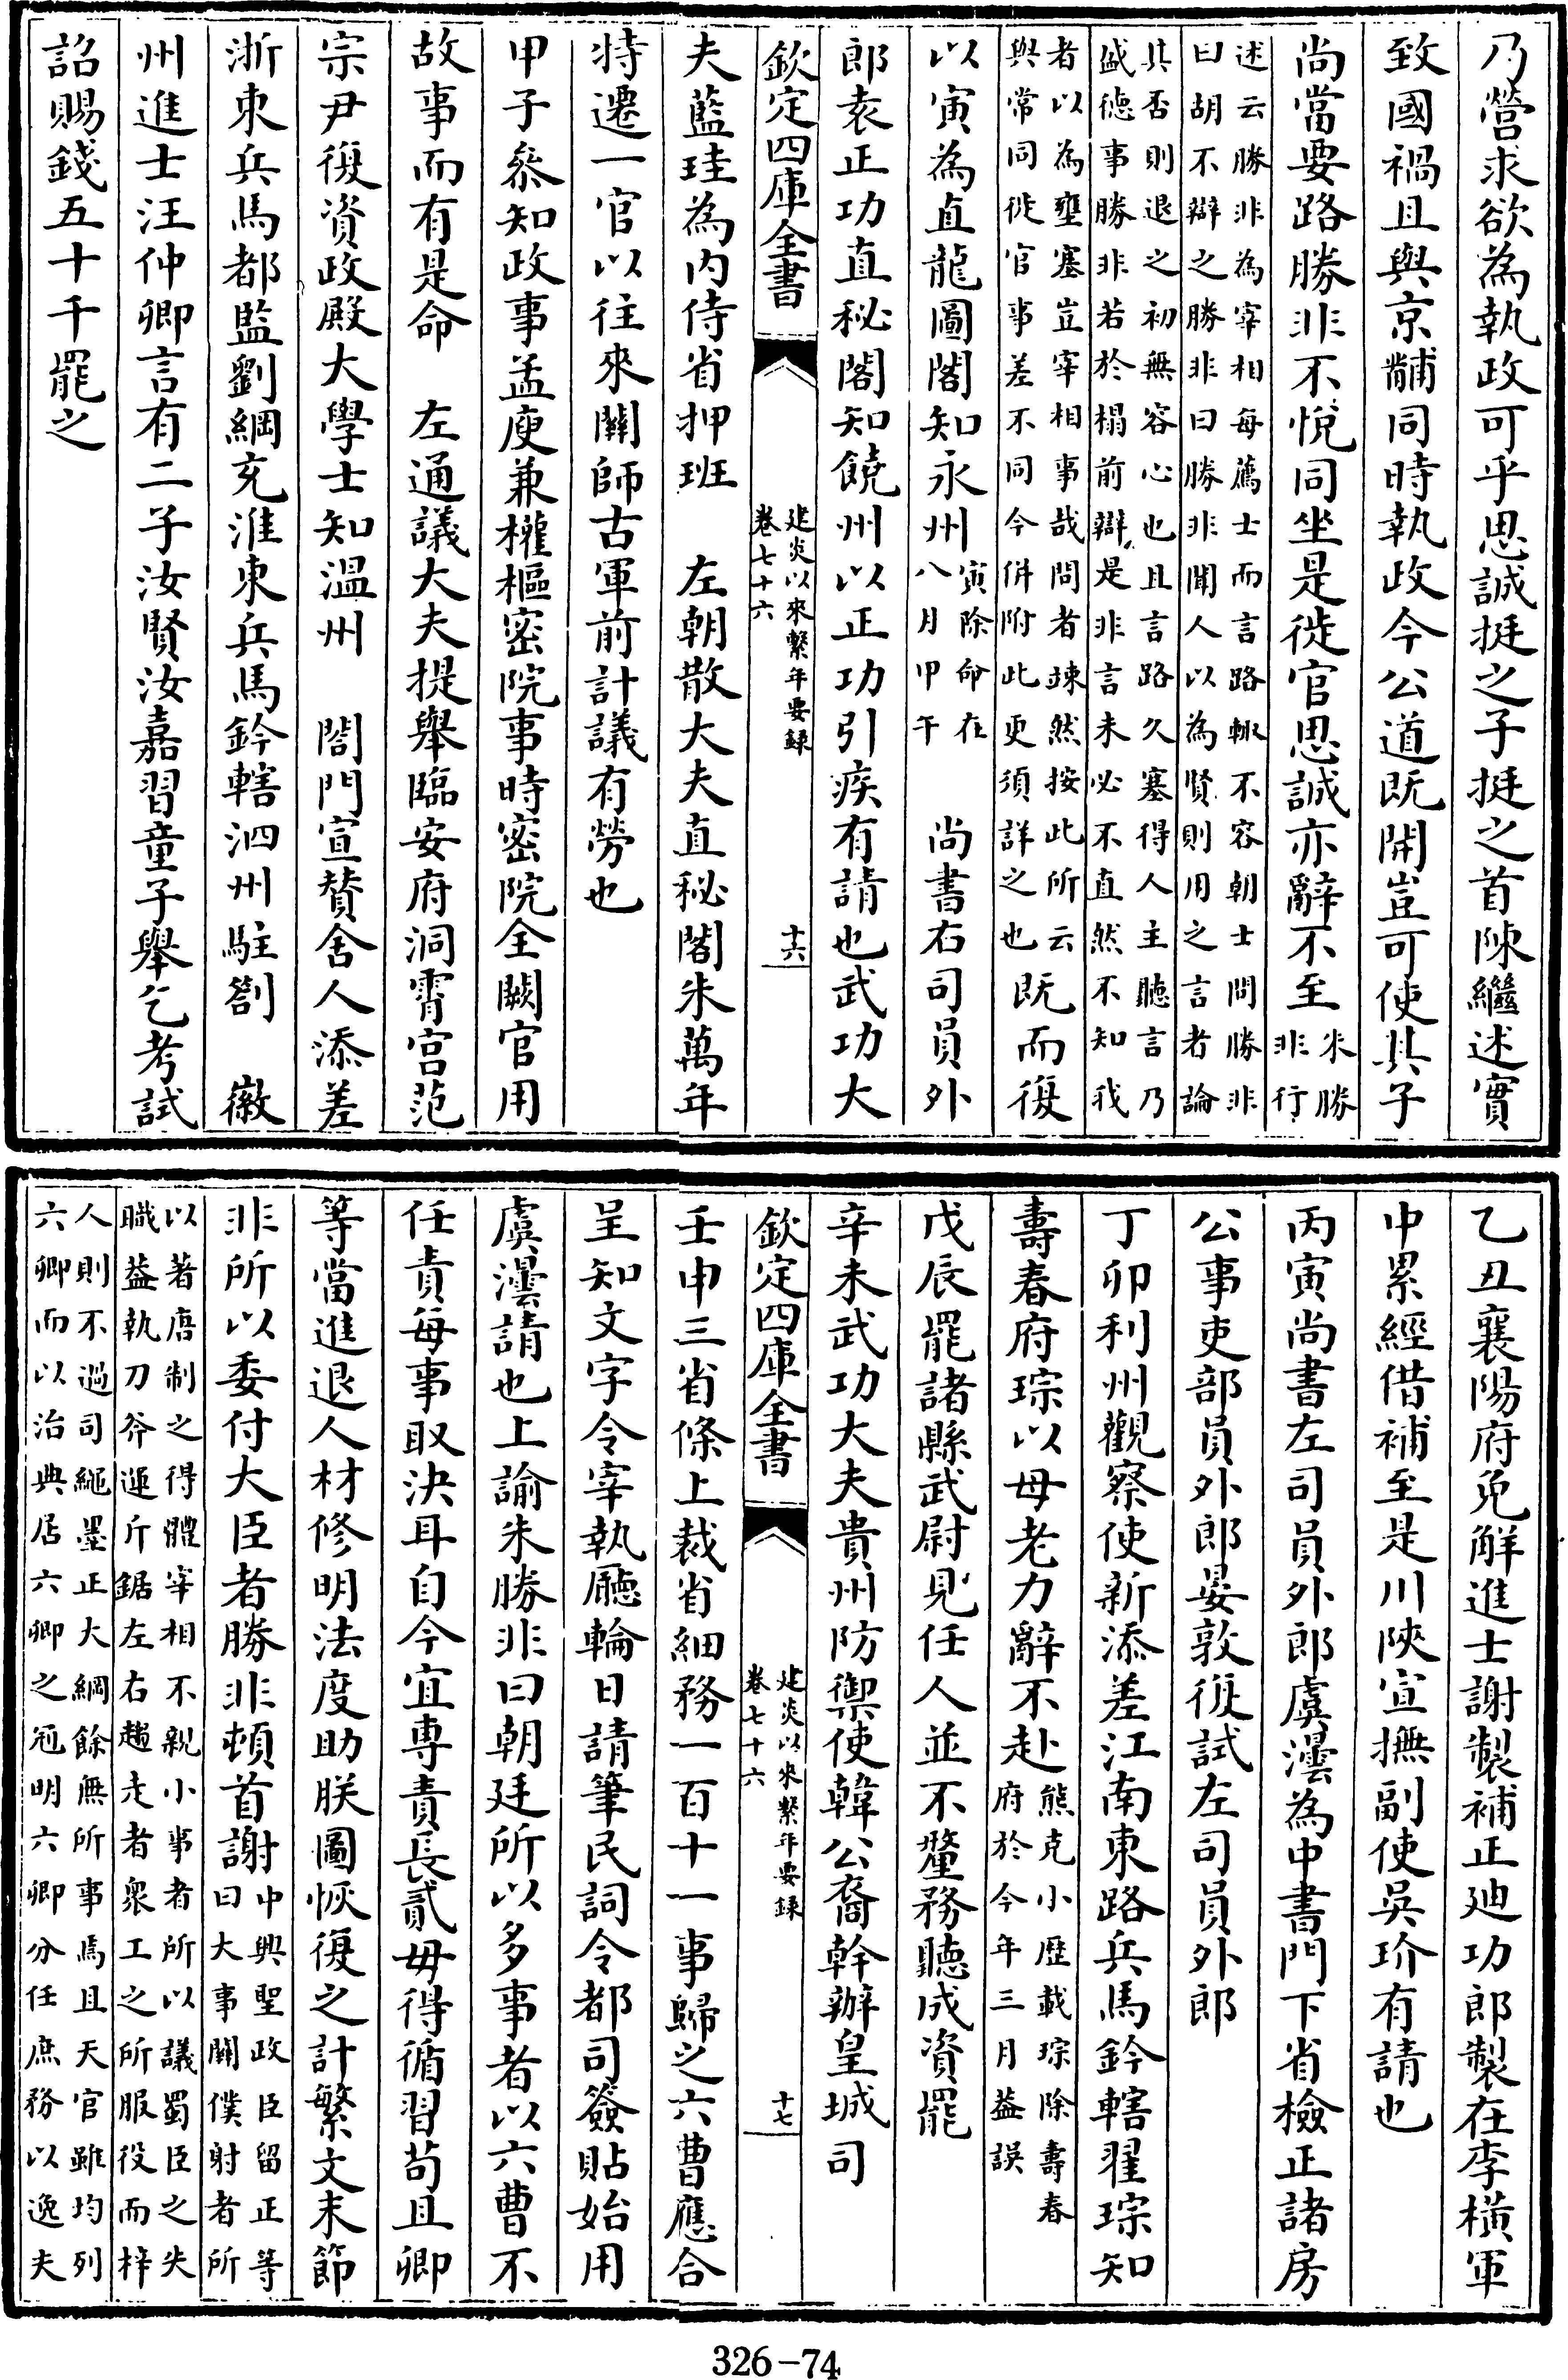 乃營求欲為執政可乎思誠挺之子挺之首陳繼述實
致國禍且與京黼同時執政今公道既開豈可使其子
尚當要路勝非不悅同坐是徙官思誠亦辭不至朱勝非行
述云勝非為宰相每薦士而言路輙不容朝士問勝非
曰胡不辯之勝非曰勝非聞人以為賢則用之言者論
其否則退之初無容心也且言路久塞得人主聽言乃
盛德事勝非若於榻前辯是非言未必不直然不知我
者以為壅塞豈宰相事哉問者竦然按此所云
與常同徙官事差不同今併附此更須詳之也既而復
以寅為直龍圖閣知永州寅除命在八月甲午　尚書右司員外
郎袁正功直秘閣知饒州以正功引疾有請也武功大
欽定四庫全書
建炎以來繫年要錄
卷七十六
十六
夫藍珪為內侍省押班　左朝散大夫直秘閣朱萬年
特遷一官以往來關師古軍前計議有勞也
甲子叅知政事孟庾兼權樞密院事時密院全闕官用
故事而有是命　左通議大夫提舉臨安府洞霄宮范
宗尹復資政殿大學士知溫州　閤門宣賛舍人添差
浙東兵馬都監劉綱充淮東兵馬鈐轄泗州駐劄　徽
州進士汪仲卿言有二子汝賢汝嘉習童子舉乞考試
詔賜錢五十千罷之
乙丑襄陽府免解進士謝製補正廸功郎製在李横軍
中累經借補至是川陜宣撫副使吳玠有請也
丙寅尚書左司員外郎虞澐為中書門下省檢正諸房
公事吏部員外郎晏敦復試左司員外郎
丁卯利州觀察使新添差江南東路兵馬鈐轄翟琮知
壽春府琮以母老力辭不赴熊克小歴載琮除壽春府於今年三月益誤
戊辰罷諸縣武尉見任人並不釐務聽成資罷
辛未武功大夫貴州防禦使韓公裔幹辦皇城司
欽定四庫全書
建炎以來繫年要錄
卷七十六
十七
壬申三省條上裁省細務一百十一事歸之六曹應合
呈知文字令宰執廳輪日請筆民詞令都司簽貼始用
虞澐請也上諭朱勝非曰朝廷所以多事者以六曹不
任責每事取決耳自今宜専責長貳毋得循習苟且卿
等當進退人材修明法度助朕圖恢復之計繁文末節
非所以委付大臣者勝非頓首謝中興聖政臣留正等曰大事關僕射者所
以著唐制之得體宰相不親小事者所以議蜀臣之失
職益執刀斧運斤鋸左右趨走者衆工之所服役而梓
人則不過司繩墨正大綱餘無所事焉且天官雖均列
六卿而以治典居六卿之冠明六卿分任庶務以逸夫
326-74